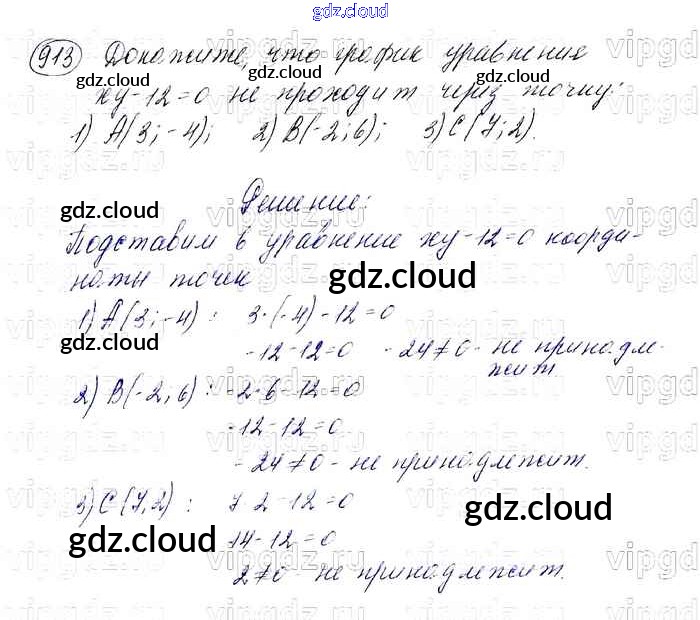 gdz.cloud
913 Докажите, что график уравнения
xy-12=0 не проходит через точку:
1) A(3;-4); 2) B(-2;6); 3) C(7;2).
Решение:
Подставим в уравнение xy-12=0 коорди-
наты точек
1) A(3;-4): 3·(-4)-12=0
-12-12=0 -24≠0- не принадле-
жит
2) B(-2;6): -2·6-12=0
-12-12=0
-24≠0- не принадлежит.
3) C(7,2): 7·2-12=0
14-12=0
2≠0- не принадлежит.
gdz.cloud
gdz.cloud
gdz.cloud
gdz.cloud
gdz.cloud
gdz.cloud
gdz.cloud
gdz.cloud